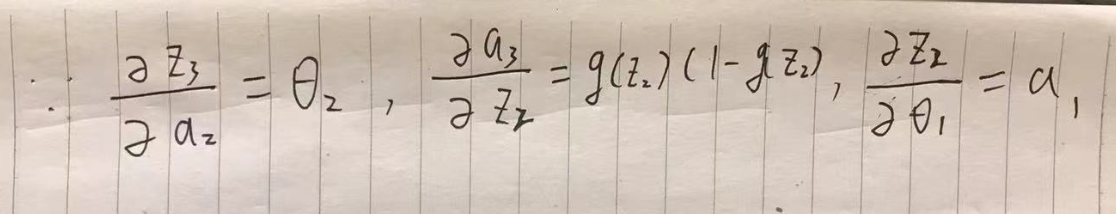 ∵ ∂z₃/∂a₂ = θ₂ , ∂a₃/∂z₂ = g(z₂)(1-g(z₂), ∂z₂/∂θ₁ = a₁